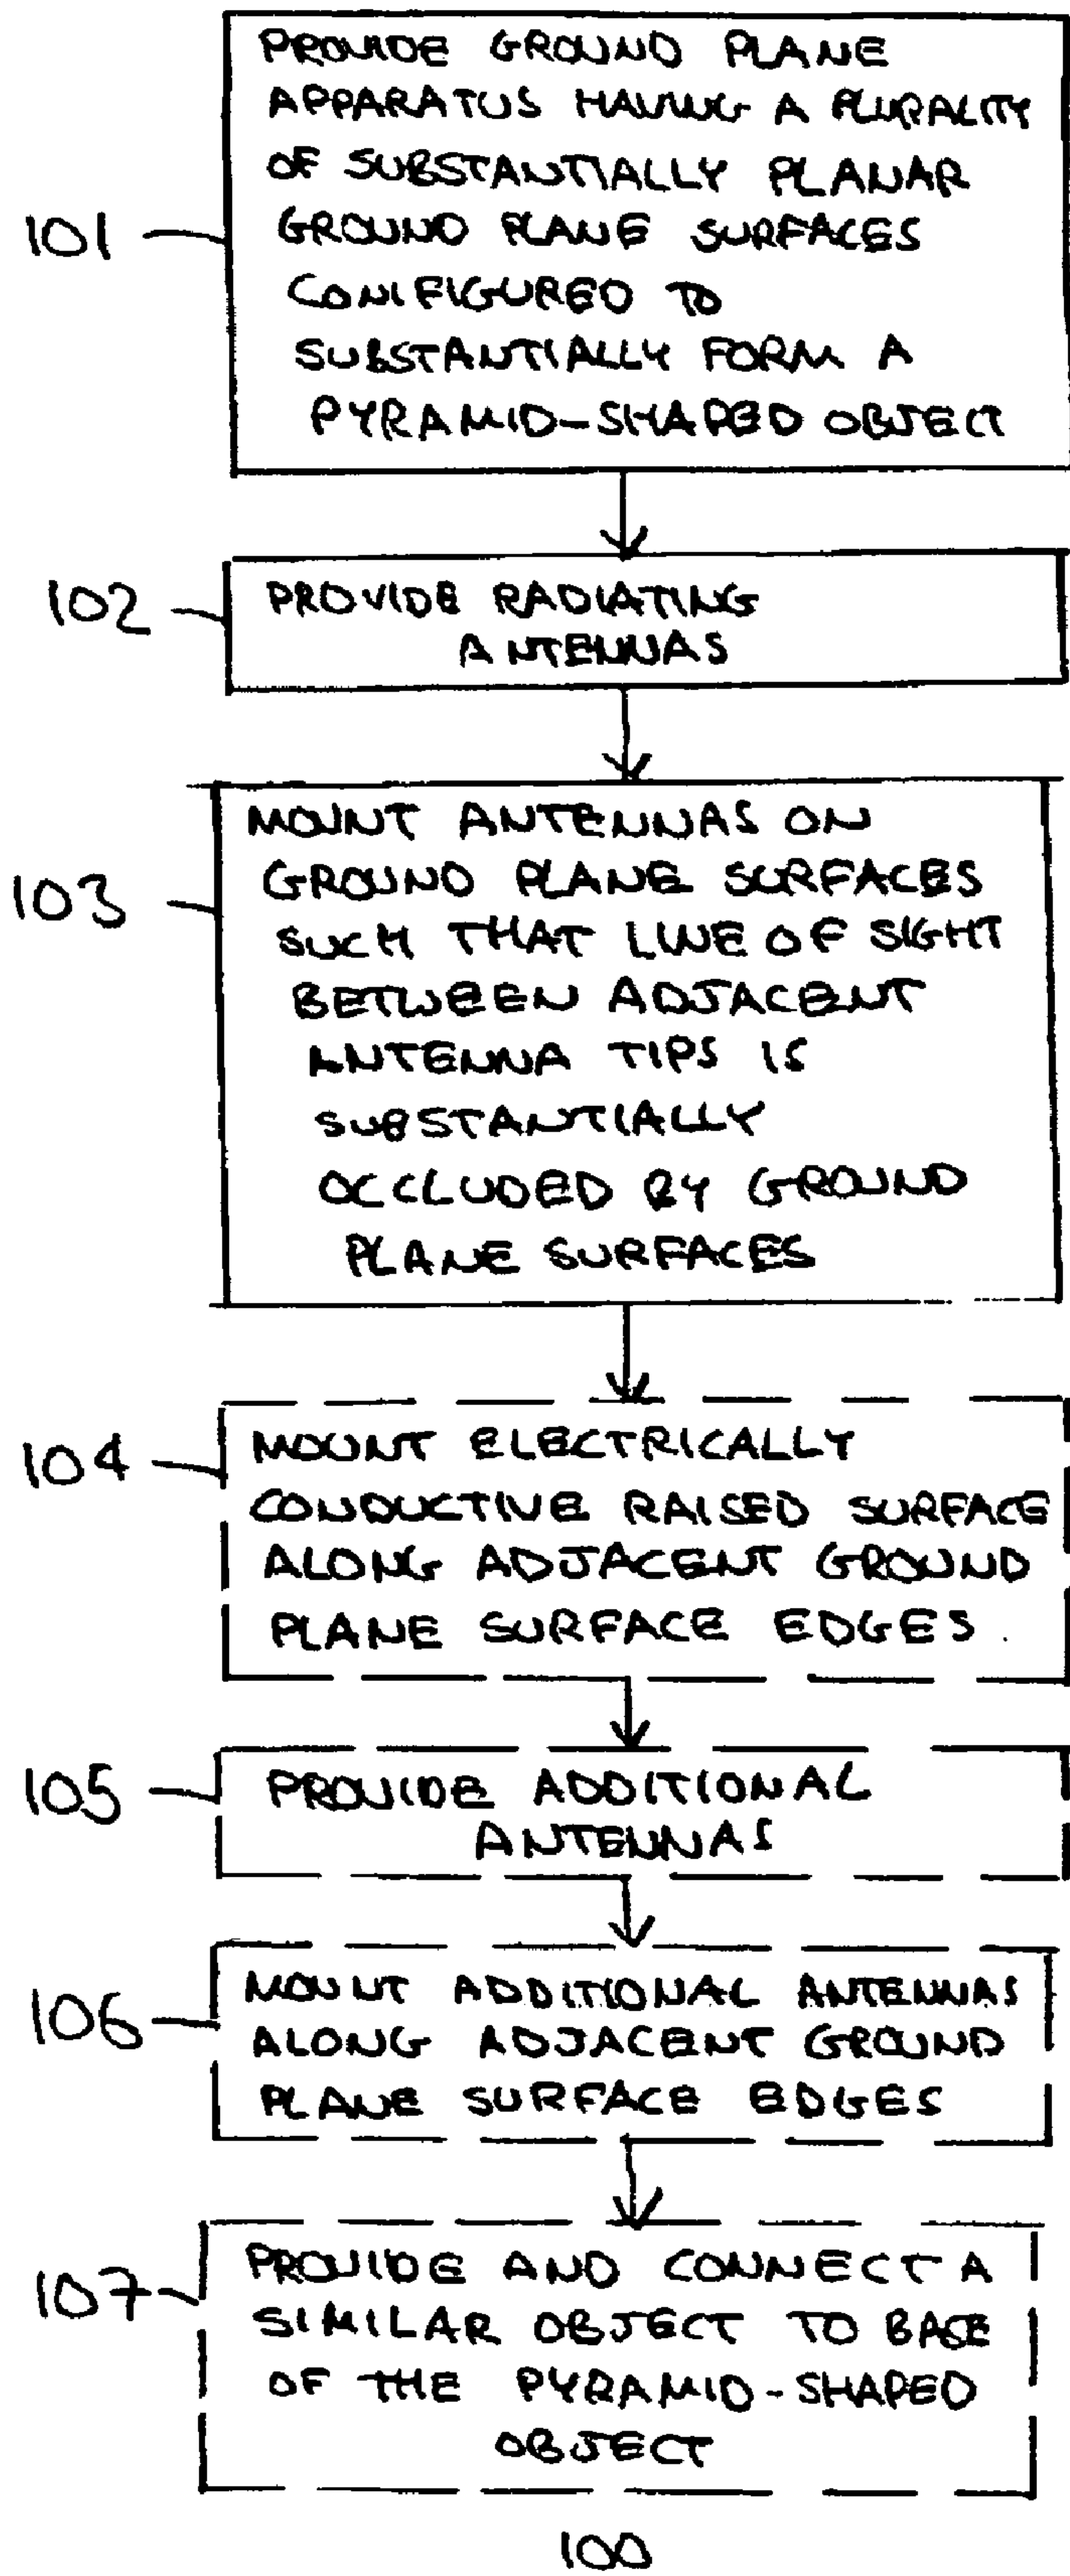 PROVIDE GROUND PLANE
APPARATUS HAVING A PLURALITY
OF SUBSTANTIALLY PLANAR
101
GROUND PLANE SURFACES
CONFIGURED TO
SUBSTANTIALLY FORM A
PYRAMID-SHAPED OBJECT
102
PROVIDE RADIATING
ANTENNAS
MOUNT ANTENNAS ON
103
GROUND PLANE SURFACES
SUCH THAT LINE OF SIGHT
BETWEEN ADJACENT
ANTENNA TIPS IS
SUBSTANTIALLY
OCCLUDED BY GROUND
PLANE SURFACES
104
MOUNT ELECTRICALLY
CONDUCTIVE RAISED SURFACE
ALONG ADJACENT GROUND
PLANE SURFACE EDGES
105
PROVIDE ADDITIONAL
ANTENNAS
106
MOUNT ADDITIONAL ANTENNAS
ALONG ADJACENT GROUND
PLANE SURFACE EDGES
107
PROVIDE AND CONNECT A
SIMILAR OBJECT TO BASE
OF THE PYRAMID-SHAPED
OBJECT
100